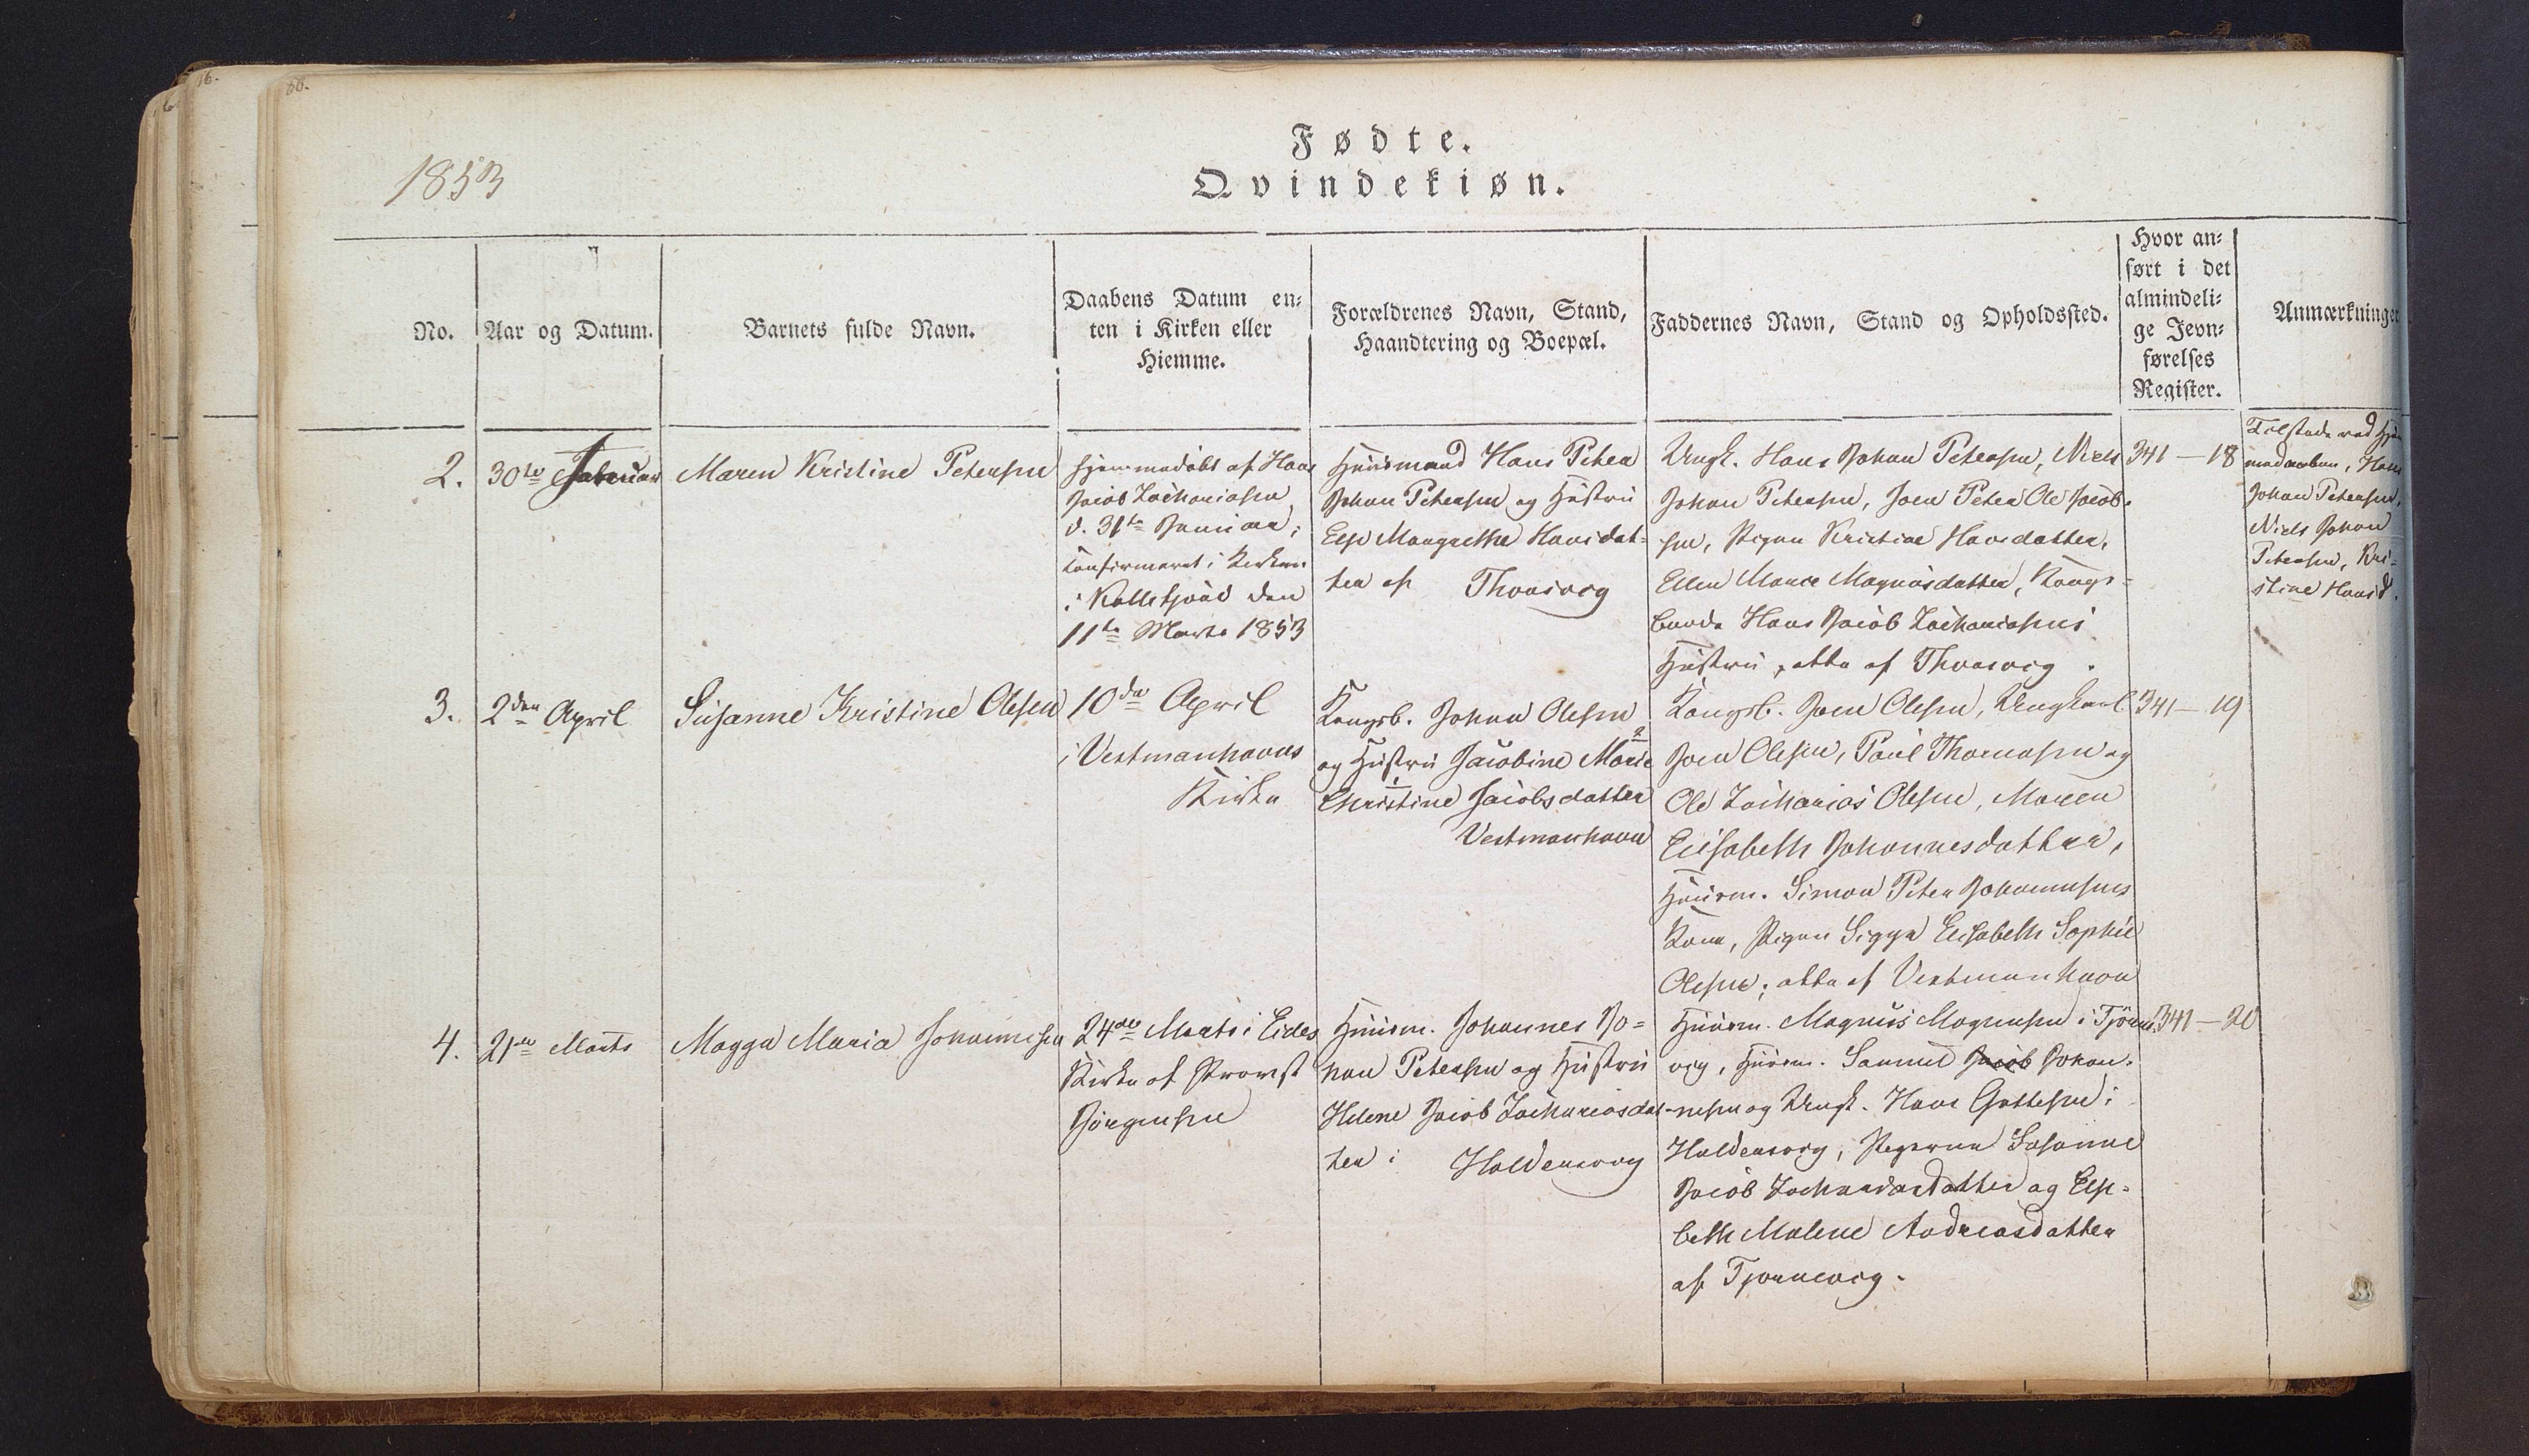 66.
1853
Fødte.
Qvindekiøn.
No.
Aar og Datum.
Barnets fulde Navn.
Daabens Datum en-
ten i Kirken eller
Hiemme.
Forældrenes Navn, Stand,
Haandtering og Boepæl.
Faddernes Navn, Stand og Opholdssted.
Hvor an-
ført i det
almindeli-
ge Jevn-
førelses
Register.
Anmærkninger
2.
30te
Maren Kristine Petersen
Hjemmedøbt af Hans
Jacob Zachariasen
d. 31te Januar;
Confirmeret i Kirken
i Kollefjord den
11te Marts 1853
Huusmand Hans Peter
Johan Petersen og Hustru
Else Margrethe Hansdat-
ter af Thorsvig
Ungk. Hans Johan Petersen, Niels
Johan Petersen, Joen Peter Ole Jacob-
sen, Pigen Kristine Hansdatter,
Ellen Marie Magnusdatter, Kongs-
bonde Hans Jacob Zachariasens
Hustru, alle af Thorsvig.
341 — 18
Tilstede ved Hjem
medaaben, Hans
Johan Petersen,
Niels Johan
Petersen, Kri-
stine Hansd.
3.
2den April
Susanne Kristine Olesen
10de April
i Vestmanhavns
Kirke
Kongsb. Johan Olesen
og Hustru Jacobine Marie
Christine Jacobsdatter
Vestmanhavn
Kongsb. Joen Olesen, Ungkarl
Joen Olesen, Paul Thomasen og
Ole Zacharias Olesen, Maren
Elisabeth Johannesdatter,
Huusm. Simon Peter Johannesens
Kone, Pigen Sigga Elisabeth Sophie
Olesen; alle af Vestmanhavn
341 — 19
4.
21de Marts
Magga Maria Johannesen
24de Marts i Eides
Kirke af Provst
Jørgensen
Huusm. Johannes Jo-
han Petersen og Hustru
Helene Jacob Zachariasdat-
ter i Haldersvig
Huusm. Magnus Mogensen i Tjørne-
vig, Huusm. Samuel Jacob Johan-
nesen og Ungk. Hans Gottesen i
Haldersvig, Pigerne Susanne
Jacob Zachariasdatter og Else-
beth Malene Andreasdatter
af Tjørnevig.
341 — 20